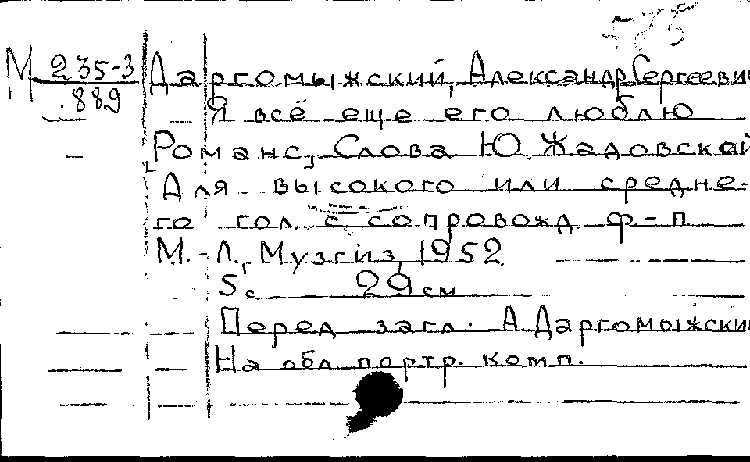 575
М 235-3 Даргомыжский, Александр Сергеевич
889
Я всё еще его люблю
Романс, Слова Ю. Жадовской
Для высокого или средне-
го гол. с сопровожд. ф-п
М.-Л., Музгиз, 1952
5 с. 29 см
Перед загл. А. Даргомыжский
На обл. портр. комп.